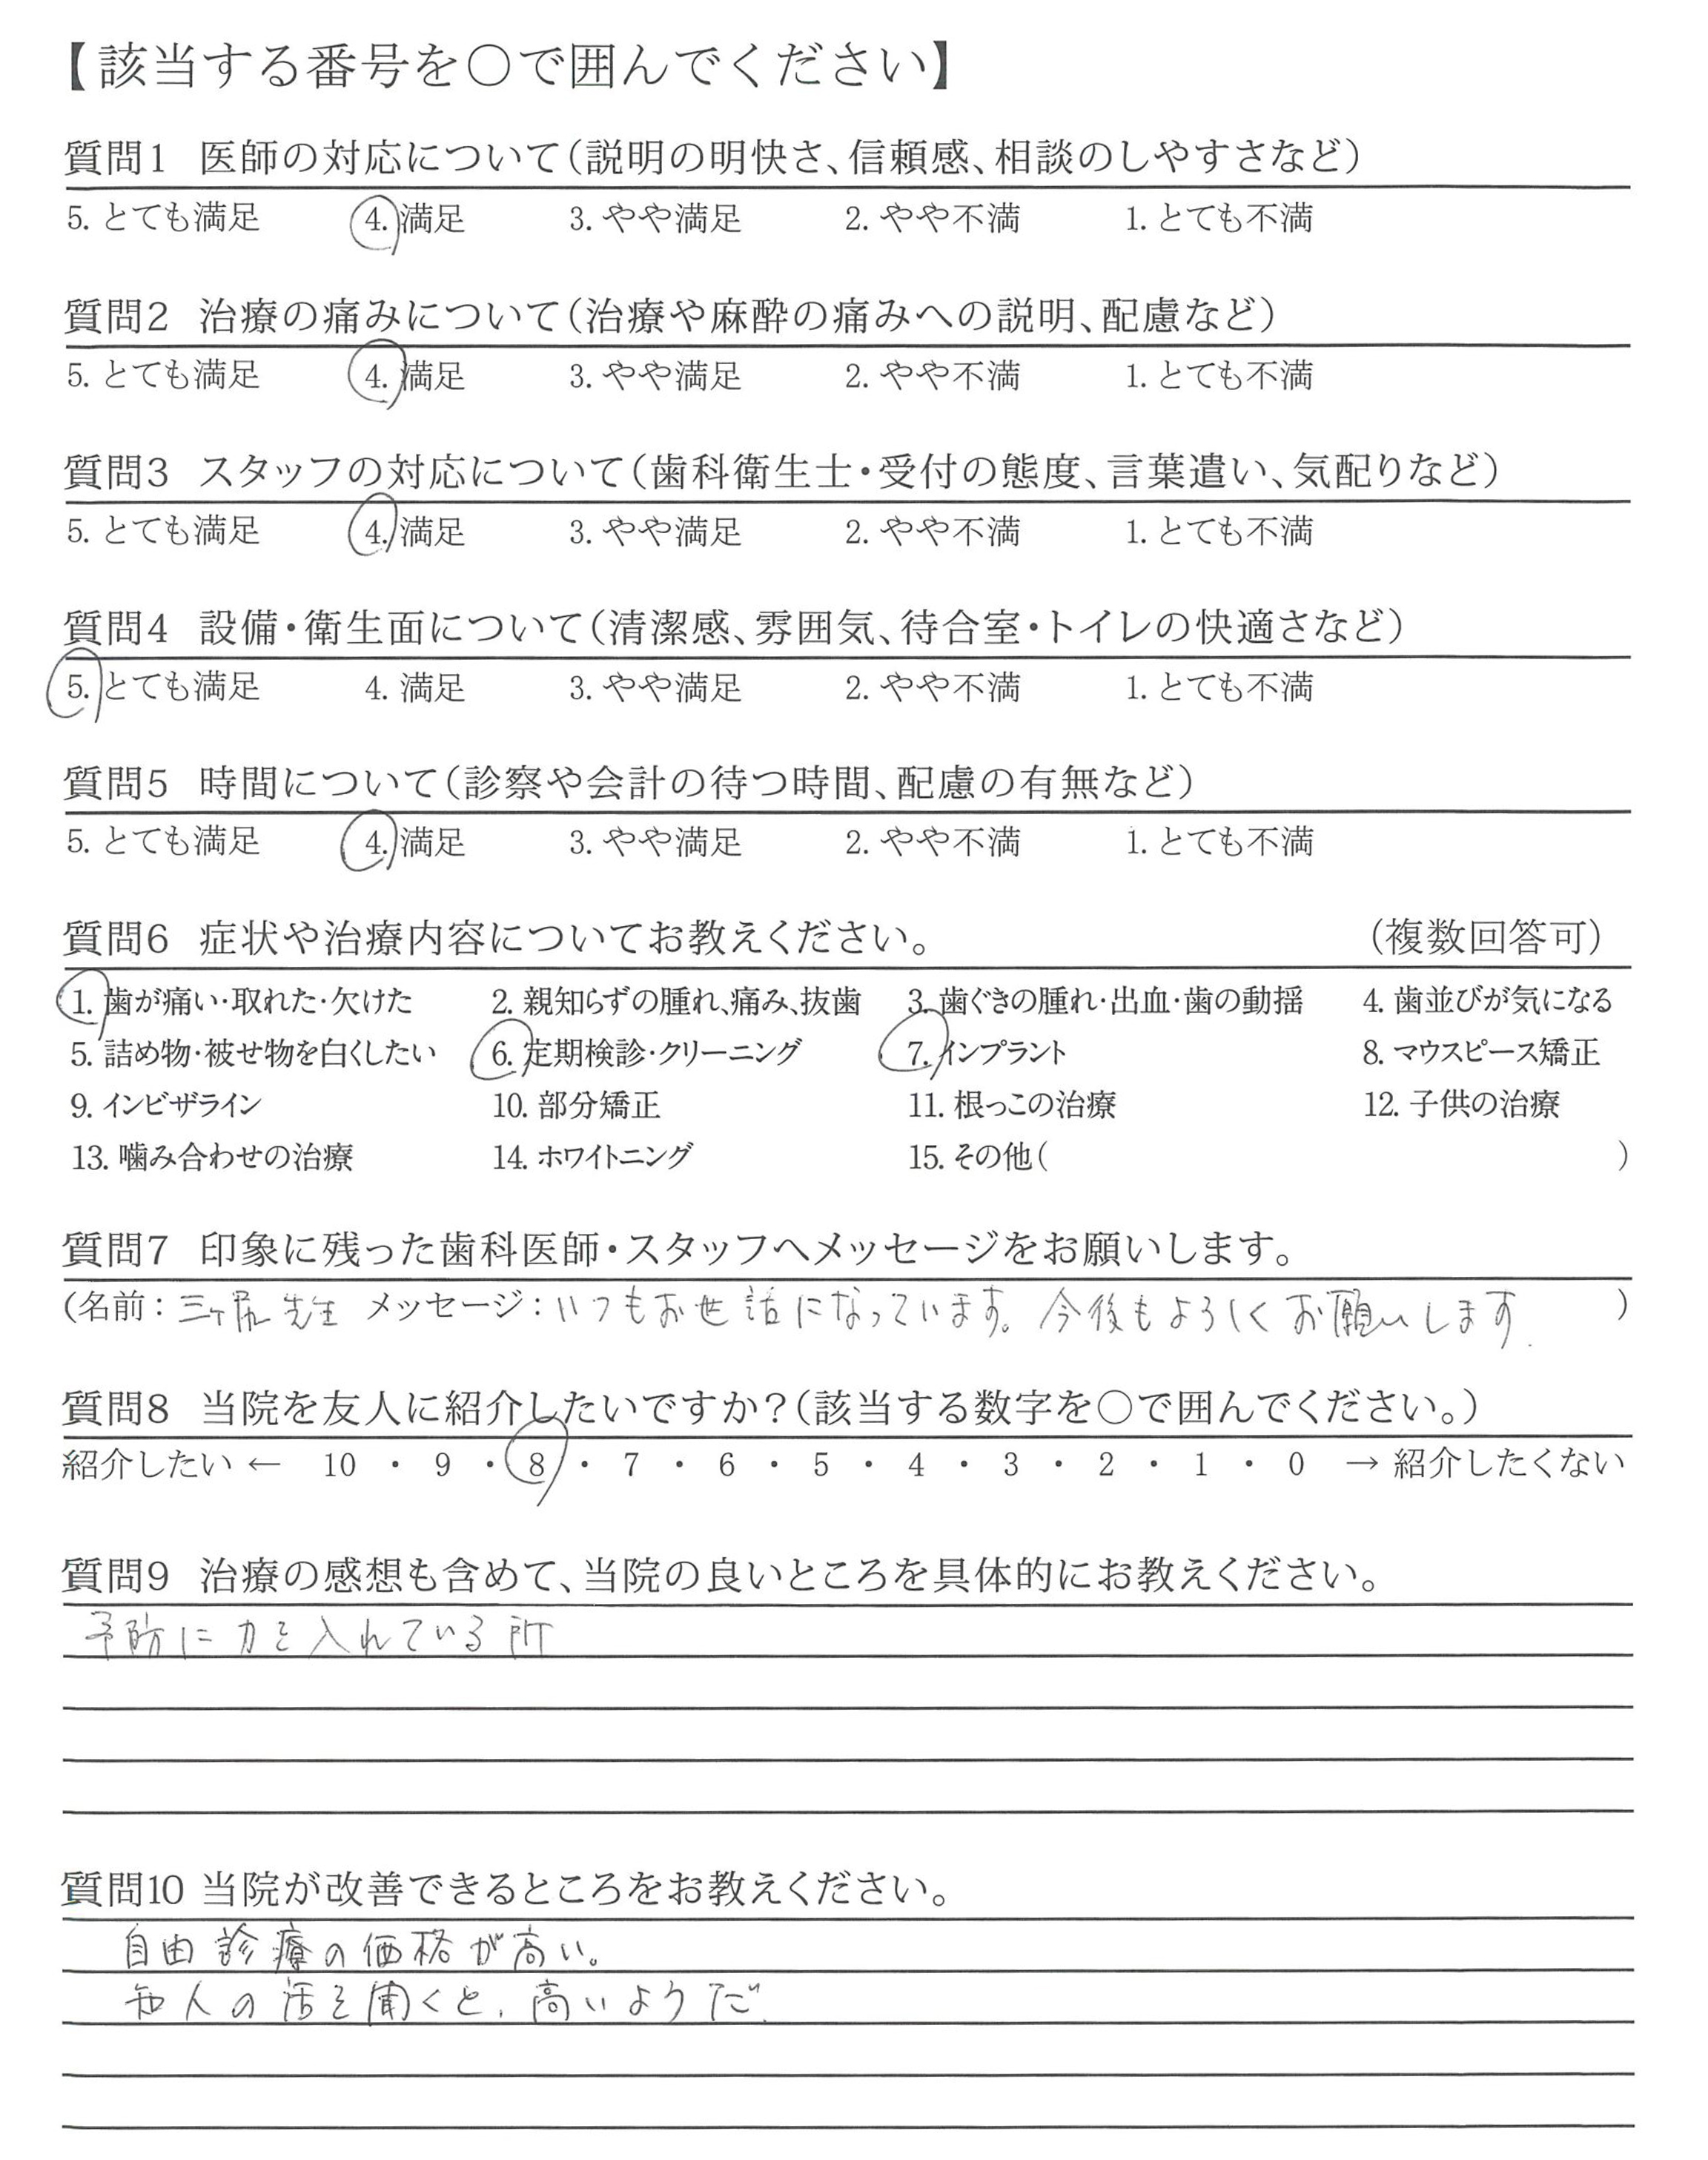 【該当する番号を○で囲んでください】
質問1 医師の対応について(説明の明快さ、信頼感、相談のしやすさなど)
5. とても満足 4. 満足 3. やや満足 2. やや不満 1. とても不満
質問2 治療の痛みについて(治療や麻酔の痛みへの説明、配慮など)
5. とても満足 4. 満足 3. やや満足 2. やや不満 1. とても不満
質問3 スタッフの対応について(歯科衛生士・受付の態度、言葉遣い、気配りなど)
5. とても満足 4. 満足 3. やや満足 2. やや不満 1. とても不満
質問4 設備・衛生面について(清潔感、雰囲気、待合室・トイレの快適さなど)
5. とても満足 4. 満足 3. やや満足 2. やや不満 1. とても不満
質問5 時間について(診察や会計の待つ時間、配慮の有無など)
5. とても満足 4. 満足 3. やや満足 2. やや不満 1. とても不満
質問6 症状や治療内容についてお教えください。 (複数回答可)
1. 歯が痛い・取れた・欠けた 2. 親知らずの腫れ、痛み、抜歯 3. 歯ぐきの腫れ・出血・歯の動揺 4. 歯並びが気になる
5. 詰め物・被せ物を白くしたい 6. 定期検診・クリーニング 7. インプラント 8. マウスピース矯正
9. インビザライン 10. 部分矯正 11. 根っこの治療 12. 子供の治療
13. 噛み合わせの治療 14. ホワイトニング 15. その他( )
質問7 印象に残った歯科医師・スタッフへメッセージをお願いします。
(名前: 三ケ尻 先生 メッセージ: いつもお世話になっています。今後もよろしくお願いします. )
質問8 当院を友人に紹介したいですか?(該当する数字を○で囲んでください。)
紹介したい ← 10 ・ 9 ・ 8 ・ 7 ・ 6 ・ 5 ・ 4 ・ 3 ・ 2 ・ 1 ・ 0 → 紹介したくない
質問9 治療の感想も含めて、当院の良いところを具体的にお教えください。
予防に力を入れている所
質問10 当院が改善できるところをお教えください。
自由診療の価格が高い。
知人の話を聞くと、高いようだ.